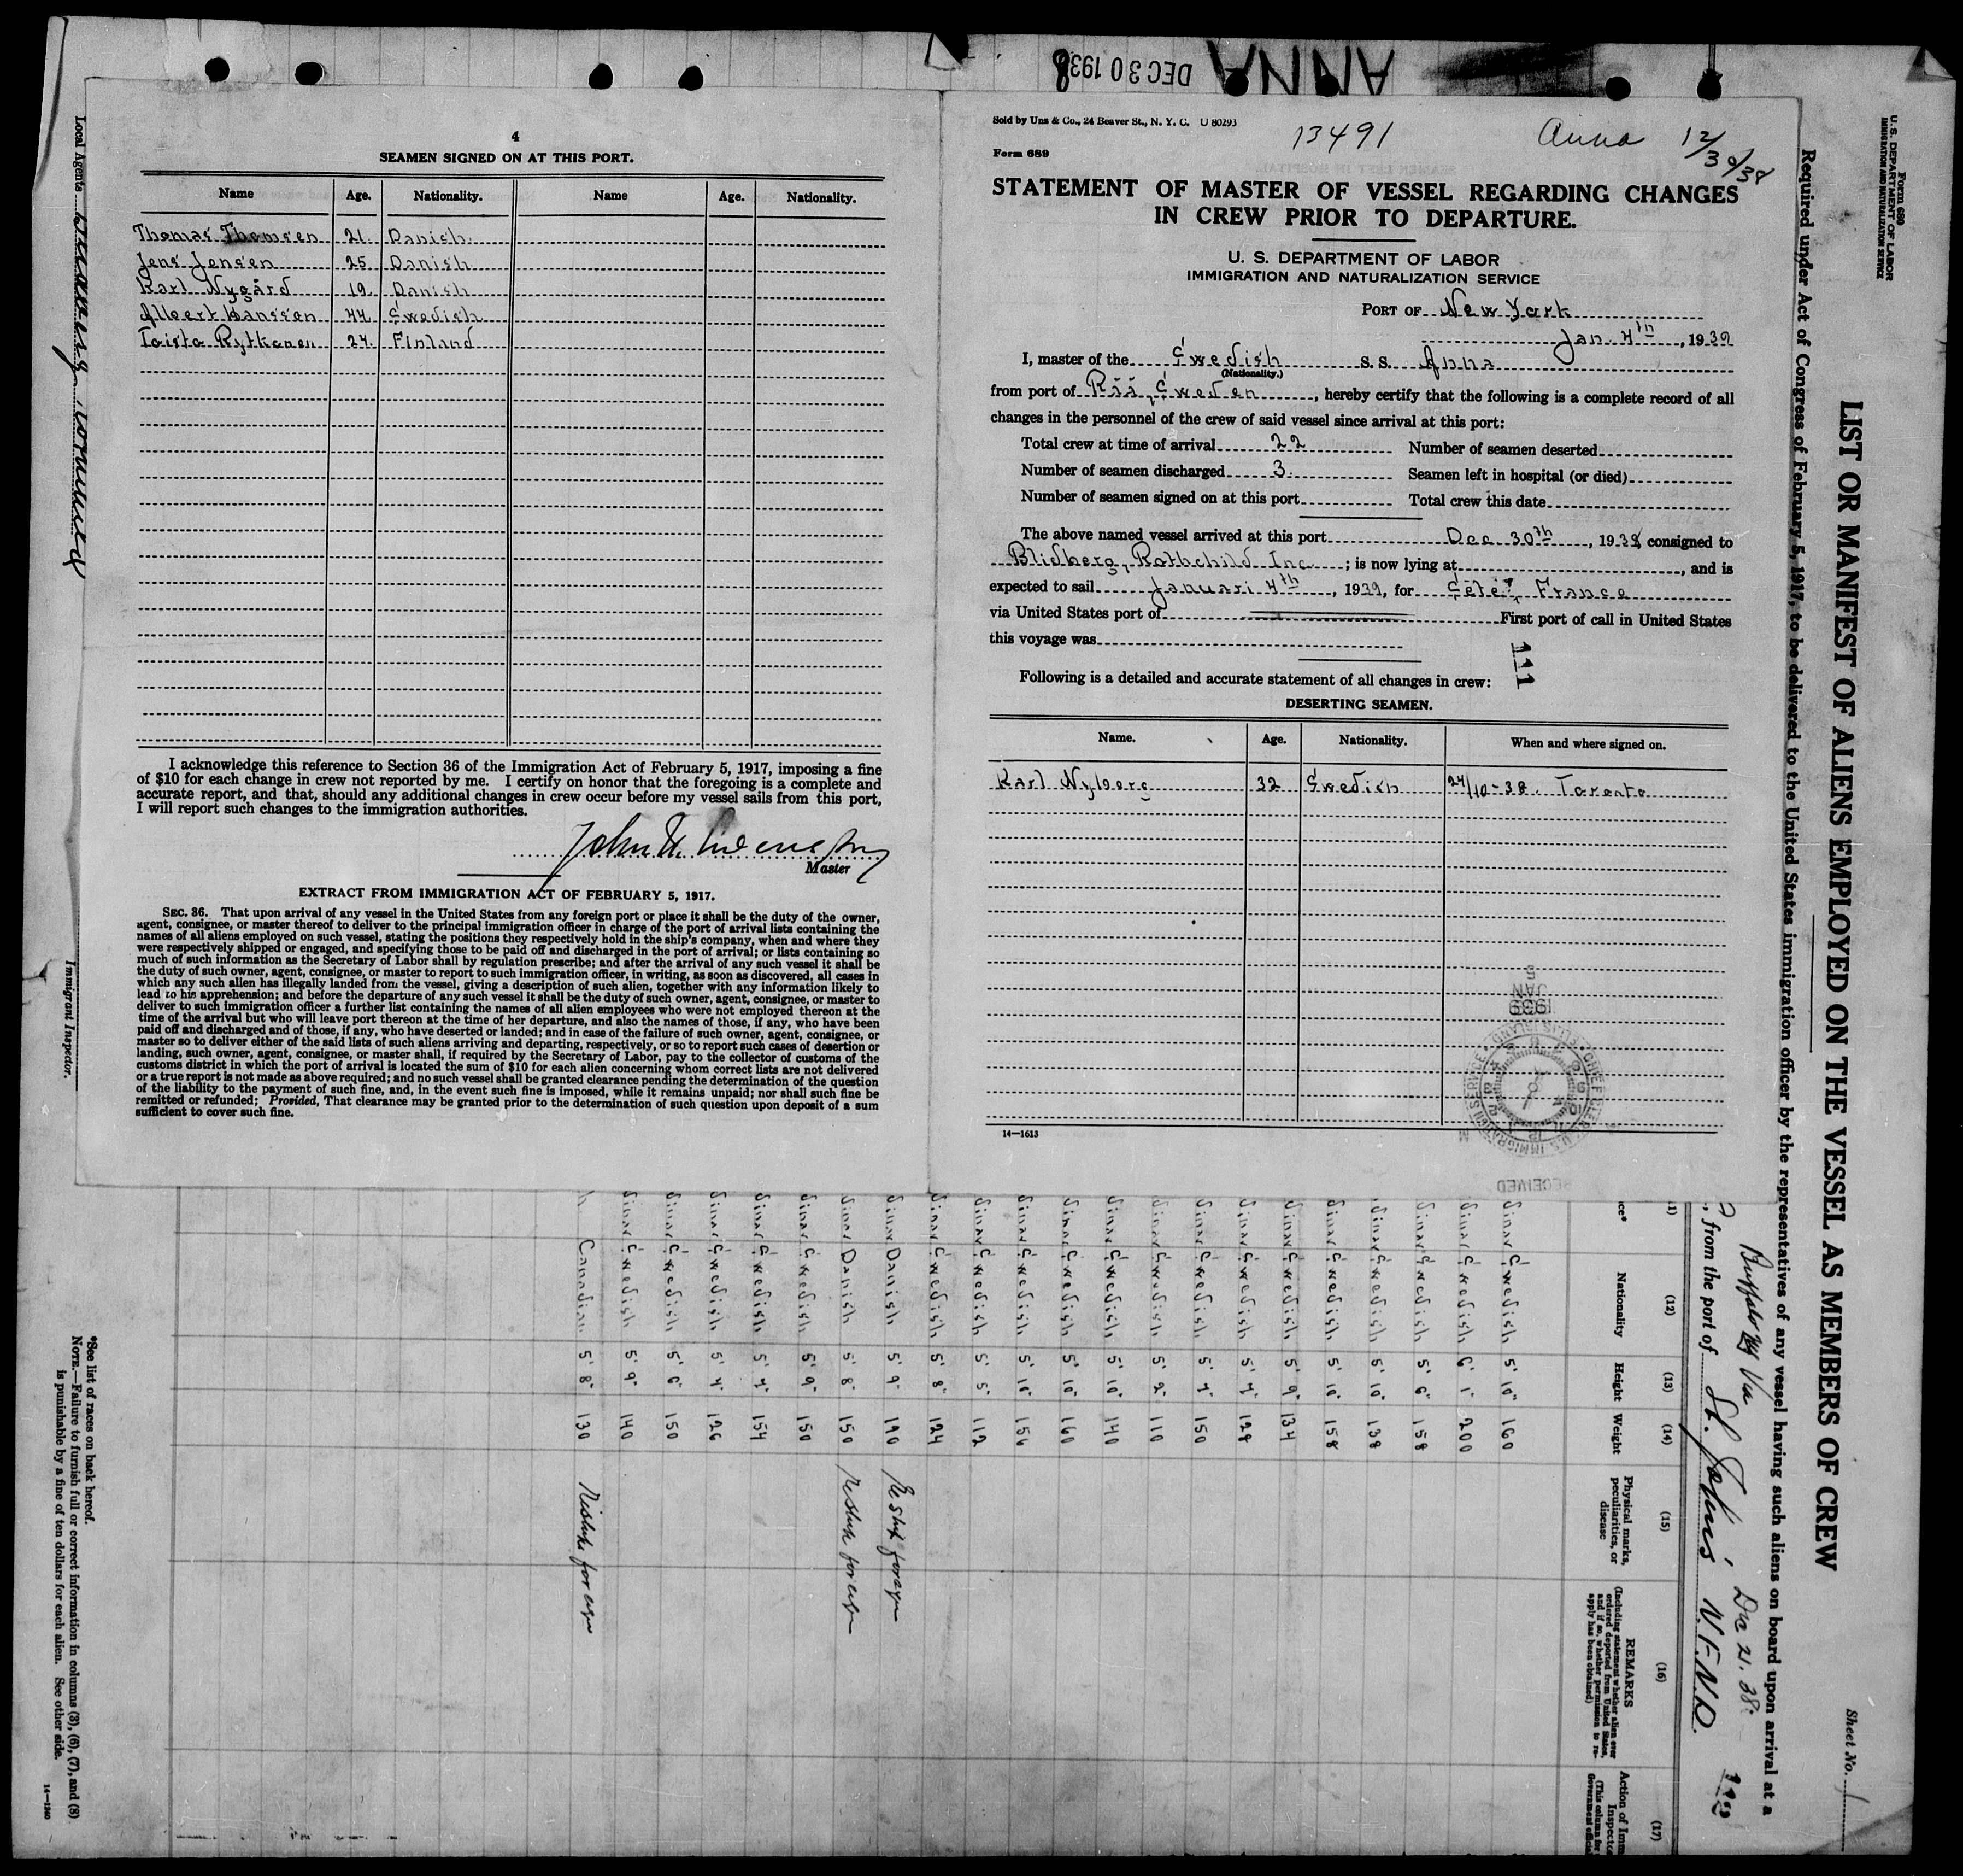 DEC 30 1938
ANNA
4
SEAMEN SIGNED ON AT THIS PORT.
Name Age. Nationality. Name Age. Nationality.
Thomas Thomsen 21. Danish.
Jens Jensen 25 Danish.
Karl Nygård 19. Danish
Albert Hanssen 44. Swedish.
Toisto Rytkonen 24. Finland
I acknowledge this reference to Section 36 of the Immigration Act of February 5, 1917, imposing a fine
of $10 for each change in crew not reported by me. I certify on honor that the foregoing is a complete and
accurate report, and that, should any additional changes in crew occur before my vessel sails from this port,
I will report such changes to the immigration authorities.
Master
EXTRACT FROM IMMIGRATION ACT OF FEBRUARY 5, 1917.
SEC. 36. That upon arrival of any vessel in the United States from any foreign port or place it shall be the duty of the owner,
agent, consignee, or master thereof to deliver to the principal immigration officer in charge of the port of arrival lists containing the
names of all aliens employed on such vessel, stating the positions they respectively hold in the ship's company, when and where they
were respectively shipped or engaged, and specifying those to be paid off and discharged in the port of arrival; or lists containing so
much of such information as the Secretary of Labor shall by regulation prescribe; and after the arrival of any such vessel it shall be
the duty of such owner, agent, consignee, or master to report to such immigration officer, in writing, as soon as discovered, all cases in
which any such alien has illegally landed from the vessel, giving a description of such alien, together with any information likely to
lead to his apprehension; and before the departure of any such vessel it shall be the duty of such owner, agent, consignee, or master to
deliver to such immigration officer a further list containing the names of all alien employees who were not employed thereon at the
time of the arrival but who will leave port thereon at the time of her departure, and also the names of those, if any, who have been
paid off and discharged and of those, if any, who have deserted or landed; and in case of the failure of such owner, agent, consignee, or
master so to deliver either of the said lists of such aliens arriving and departing, respectively, or so to report such cases of desertion or
landing, such owner, agent, consignee, or master shall, if required by the Secretary of Labor, pay to the collector of customs of the
customs district in which the port of arrival is located the sum of $10 for each alien concerning whom correct lists are not delivered
or a true report is not made as above required; and no such vessel shall be granted clearance pending the determination of the question
of the liability to the payment of such fine, and, in the event such fine is imposed, while it remains unpaid; nor shall such fine be
remitted or refunded; Provided, That clearance may be granted prior to the determination of such question upon deposit of a sum
sufficient to cover such fine.
Sold by Unz & Co., 24 Beaver St., N. Y. C. U 80293
13491 Anna 12/30/38
Form 689
STATEMENT OF MASTER OF VESSEL REGARDING CHANGES
IN CREW PRIOR TO DEPARTURE.
U. S. DEPARTMENT OF LABOR
IMMIGRATION AND NATURALIZATION SERVICE
PORT OF New York
Jan. 4th, 1939
I, master of the Swedish S. S. Anna
(Nationality.)
from port of Råå, Sweden, hereby certify that the following is a complete record of all
changes in the personnel of the crew of said vessel since arrival at this port:
Total crew at time of arrival 22 Number of seamen deserted
Number of seamen discharged 3. Seamen left in hospital (or died)
Number of seamen signed on at this port Total crew this date
The above named vessel arrived at this port Dec 30th, 1938 consigned to
Blidberg, Rothchild Inc. ; is now lying at , and is
expected to sail Januari 4th, 1939, for Séte, France
via United States port of First port of call in United States
this voyage was
111
Following is a detailed and accurate statement of all changes in crew:
DESERTING SEAMEN.
Name. Age. Nationality. When and where signed on.
Karl Nyberg 32 Swedish 24/10-38. Toronto
JAN 5
1939
RECEIVED
14—1613
Local Agents
Immigrant Inspector.
Form 689
U.S. DEPARTMENT OF LABOR
IMMIGRATION AND NATURALIZATION SERVICE
LIST OR MANIFEST OF ALIENS EMPLOYED ON THE VESSEL AS MEMBERS OF CREW
Sheet No. 1
Required under Act of Congress of February 5, 1917, to be delivered to the United States immigration officer by the representatives of any vessel having such aliens on board upon arrival at a
Buffalo NY Via Dec 21. 38.
, from the port of St. John's N.F.N.D.
(12) (13) (14) (15) (16) (17)
Nationality Height Weight Physical marks, peculiarities, or disease REMARKS
(Including statement whether alien ever ordered deported from United States, and if so, whether permission to reapply has been obtained)
Swedish 5' 10" 160
Swedish 6' 1" 200
Swedish 5' 6" 158
Swedish 5' 10" 138
Swedish 5' 10" 158
Swedish 5' 9" 134
Swedish 5' 7" 128
Swedish 5' 7" 150
Swedish 5' 2" 110
Swedish 5' 10" 140
Swedish 5' 10" 160
Swedish 5' 10" 156
Swedish 5' 5" 112
Swedish 5' 8" 124
Danish 5' 9" 190
Danish 5' 8" 150
Swedish 5' 9" 150
Swedish 5' 7" 154
Swedish 5' 4" 126
Swedish 5' 6" 150
Swedish 5' 9" 140
Canadian 5' 8" 130
*See list of races on back hereof.
NOTE.—Failure to furnish full or correct information in columns (3), (6), (7), and (8)
is punishable by a fine of ten dollars for each alien. See other side.
14—1240